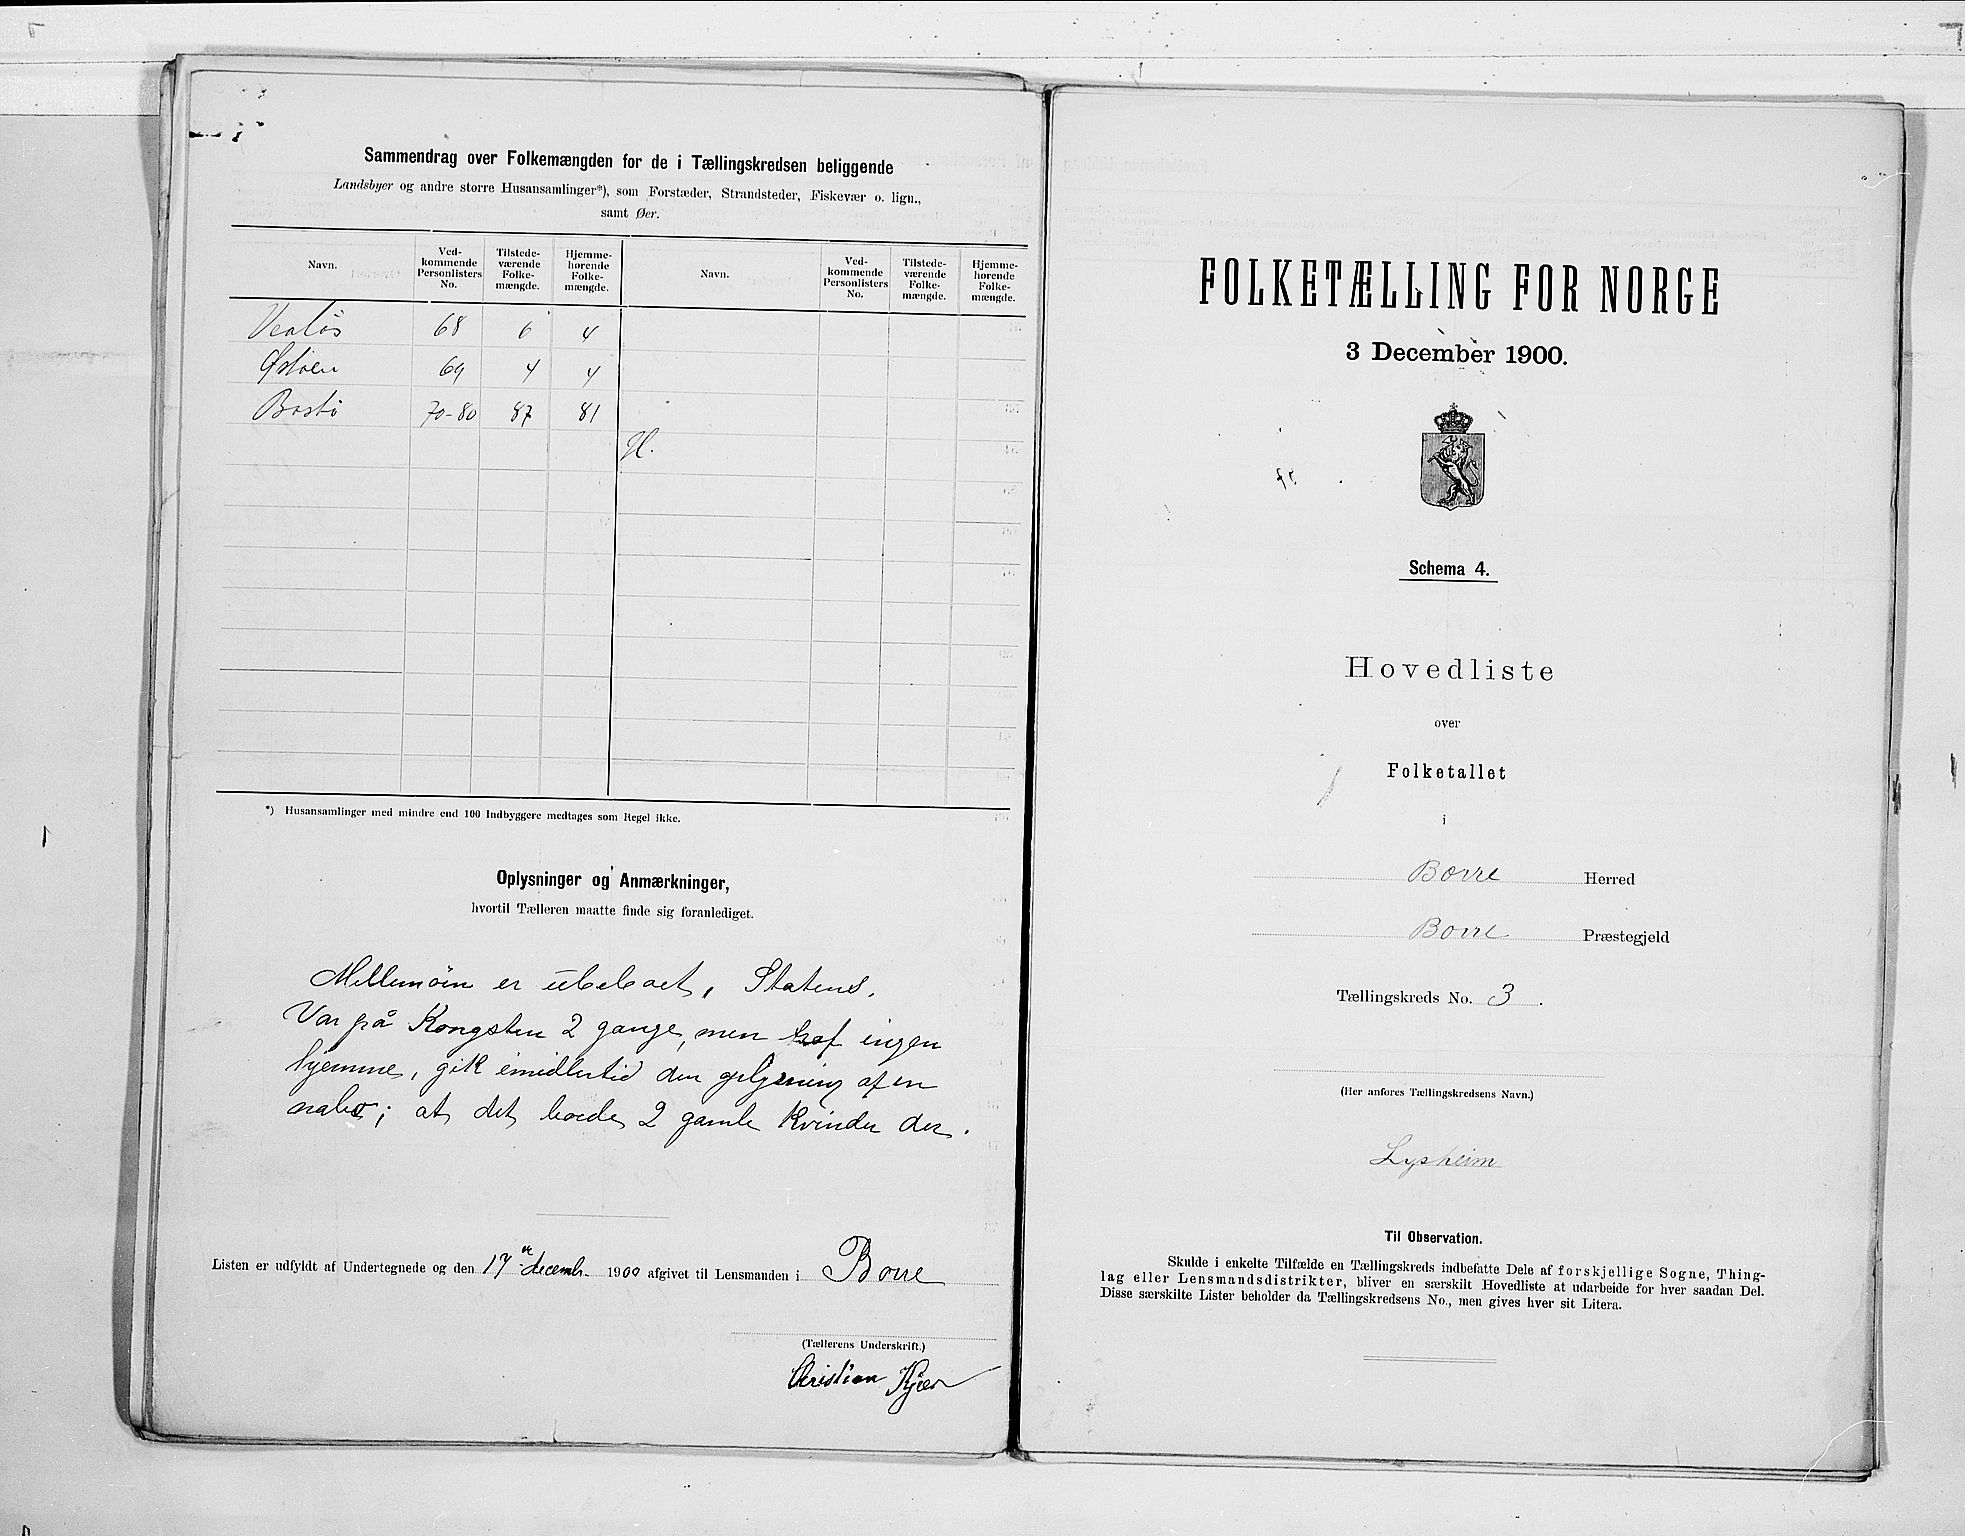 Sammendrag over Folkemængden for de i Tællingskredsen beliggende
Landsbyer og andre større Husansamlinger*), som Forstæder, Strandsteder, Fiskevær o. lign.,
samt Øer.
Navn. Ved-kommende Personlisters No. Tilstede-værende Folke-mængde. Hjemme-hørende Folke-mængde. Navn. Ved-kommende Personlisters No. Tilstede-værende Folke-mængde. Hjemme-hørende Folke-mængde.
Vealös 68 6 4
Østöen 69 4 4
Bastö 70-80 87 81
H.
*) Husansamlinger med mindre end 100 Indbyggere medtages som Regel ikke.
Oplysninger og Anmærkninger,
hvortil Tælleren maatte finde sig foranlediget.
Mellemöen er ubeboet, Statens.
Var på Kongsten 2 gange, men traf ingen
hjemme, gik imidlertid den oplysning af en
nabo; at det boede 2 gamle Kvinder der.
Listen er udfyldt af Undertegnede og den 17de decemb. 1900 afgivet til Lensmanden i Borre
(Tællerens Underskrift.)
Christian Kjær
FOLKETÆLLING FOR NORGE
3 December 1900.
Schema 4.
Hovedliste
over
Folketallet
i
Borre Herred
Borre Præstegjeld
Tællingskreds No. 3.
(Her anføres Tællingskredsens Navn.)
Lysheim
Til Observation.
Skulde i enkelte Tilfælde en Tællingskreds indbefatte Dele af forskjellige Sogne, Thing-
lag eller Lensmandsdistrikter, bliver en særskilt Hovedliste at udarbeide for hver saadan Del.
Disse særskilte Lister beholder da Tællingskredsens No., men gives hver sit Litera.